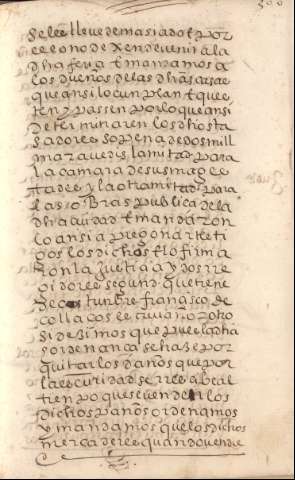 se le lleve demasiado e por
ee e o no dexen de venir a la
dha feria e mandamos a
los dueños de las dhas casas
que ansi lo cunplan e guar
ten y passen por lo que ansi
determinaren los dhos ta
sadores so pena de dos mill
maravedis la mitad para
la camara de su mages
tad e y la otra mitad para
las oBras publica de la
dha ciudad e mandaron
lo ansi apregonar te ti
gos los dichos e lo firma
ron la justicia y dos rre
gidores segund que tiene
de costunbre francisco de
collaços escrivano otro
si dezimos que pues la dha
ordenança se haze por
quitar los daños que por
la escuridad se rrecibe al
tienpo que se venden los
dichos paños ordenamos
y mandamos que los dichos
mercaderes quando vende